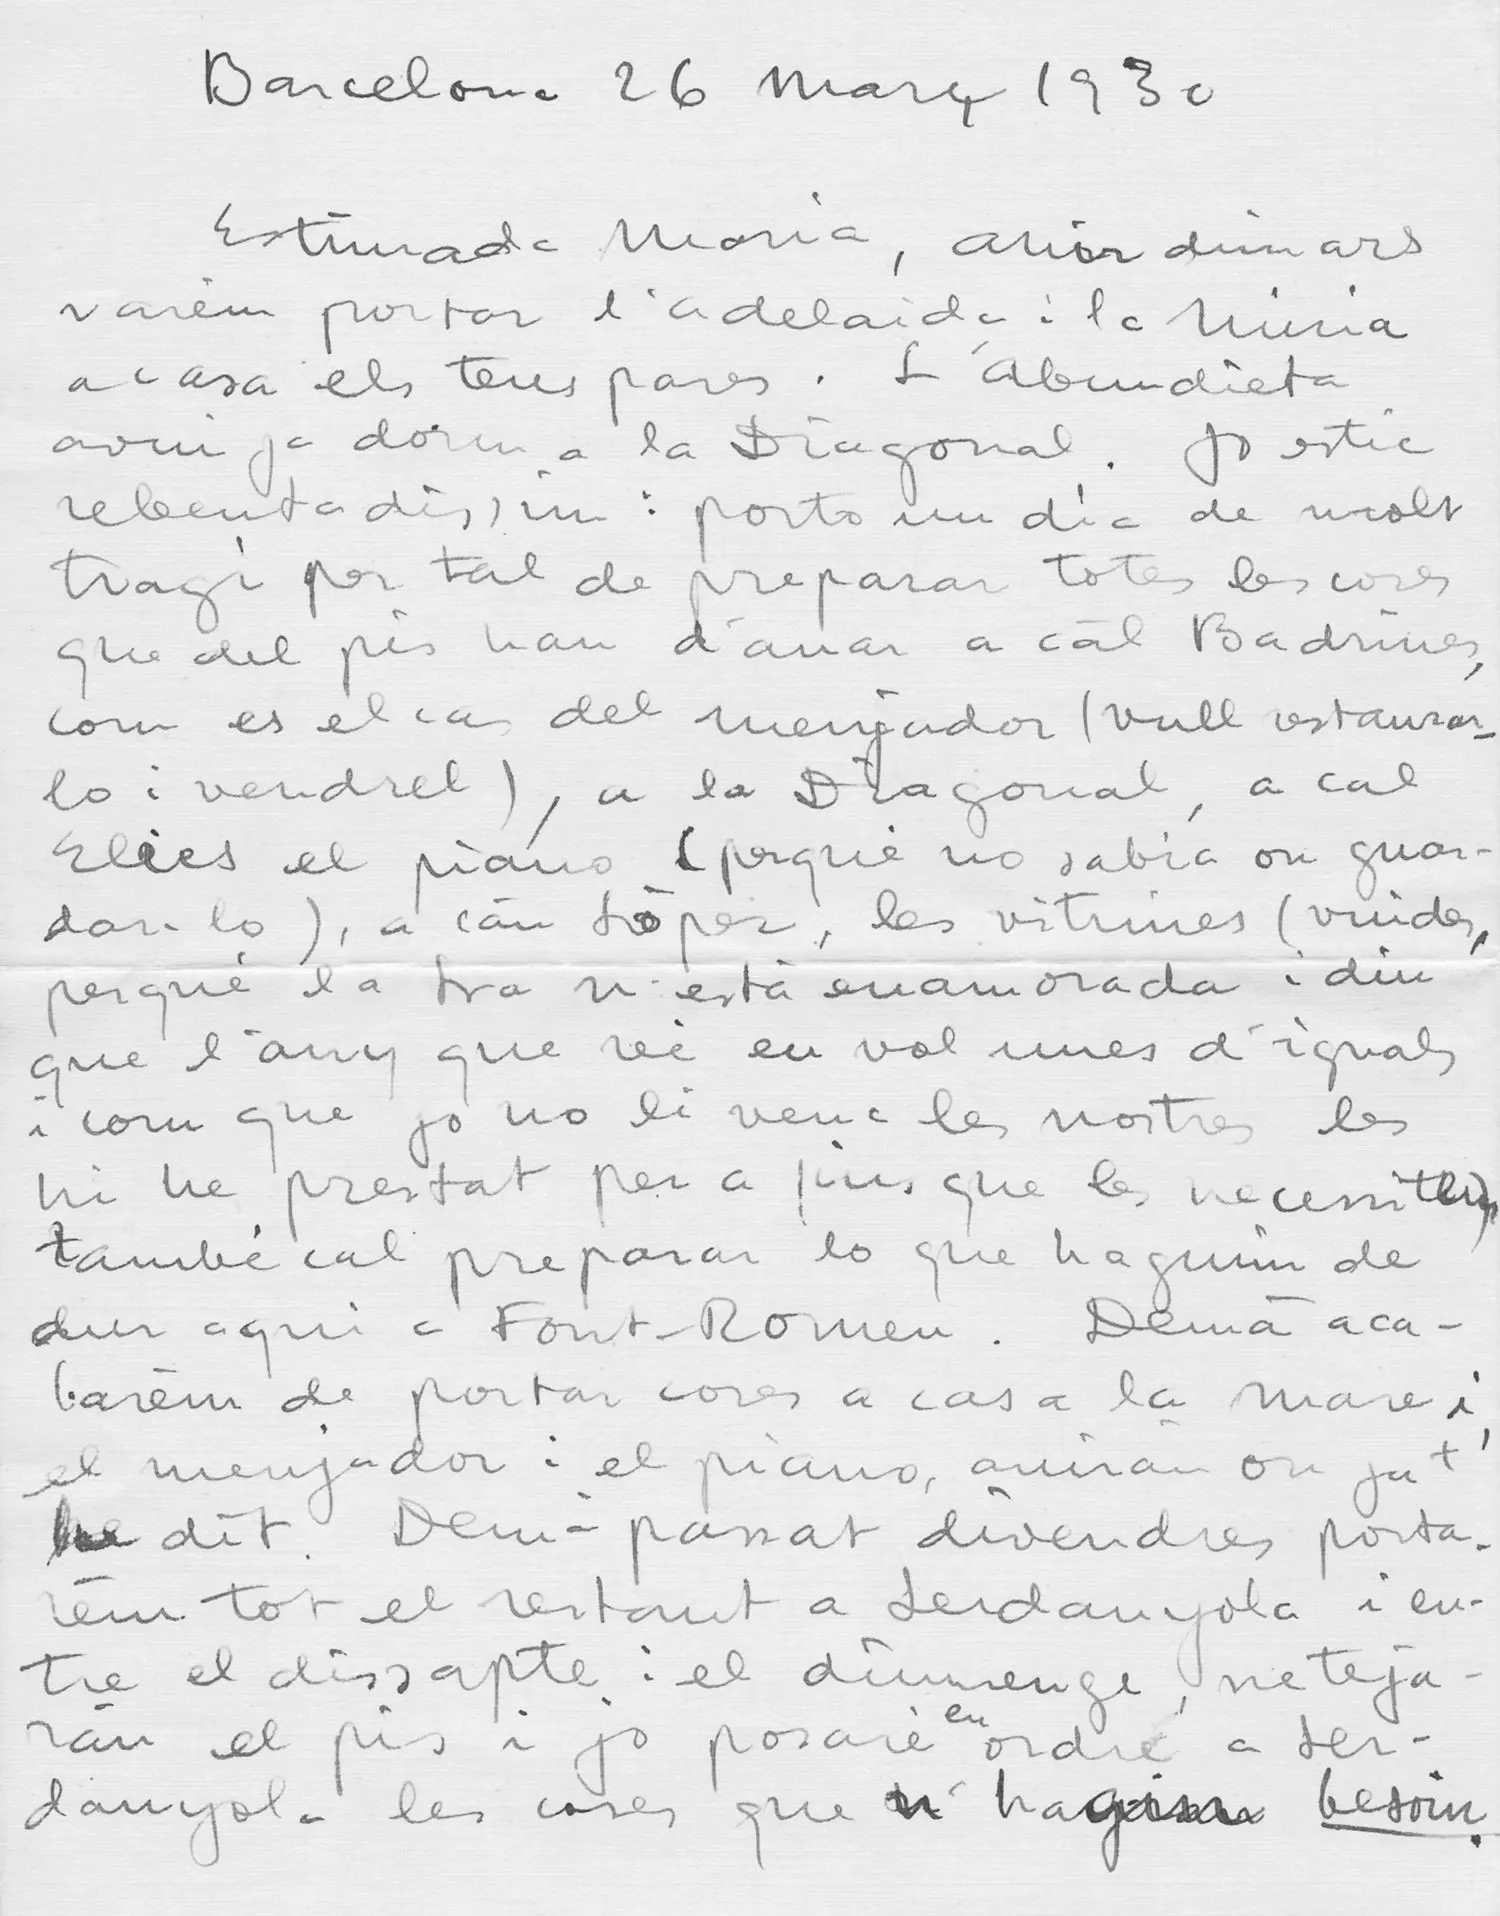 Barcelona 26 Març 1930
Estimada Maria, ahir dimars
varem portar l'adelaida i la Nuria
a casa els teus pares. L'Abundieta
avui ja dorm a la Diagonal. Jo estic
rebentadissim: porto un dia de molt
tragí per tal de preparar totes les coses
que del pis han d'anar a cál Badrines,
com es el cas del menjador (vull restaurar-
lo i vendrel), a la Diagonal, a cal
Elies el piano (perquè no sabía on guar-
dar-lo), a cán López, les vitrines (vuides,
perquè la n'está enamorada i diu
que l'any que vé en vol unes d'iguals
i com que jo no li venc les nostres les
hi he prestat per a fins que les necessitem)
també cal preparar lo que haguim de
dur aqui a Font-Romeu. Demá aca-
barèm de portar coses a casa la mare i
el menjador i el piano, aniràn on ja t'
he dit. Demá passat divendres porta-
rém tot el restant a Serdanyola i en-
tre el dissapte i el diumenge, neteja-
rán el pis i jo posaré en ordre a Ser-
danyola les coses que n'hagim besoin.